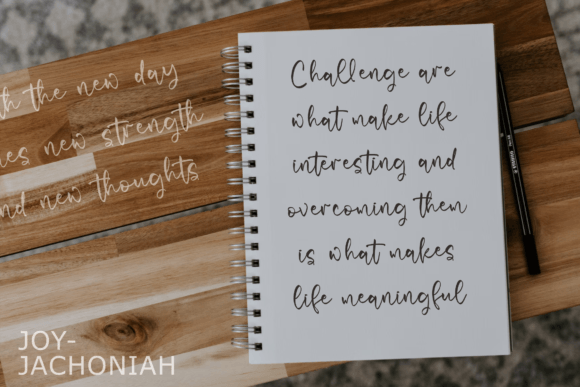 th the new day
es new strength
nd new thoughts
Challenge are
what make life
interesting and
overcoming then
is what makes
life meaningful
JOY-
JACHONIAH